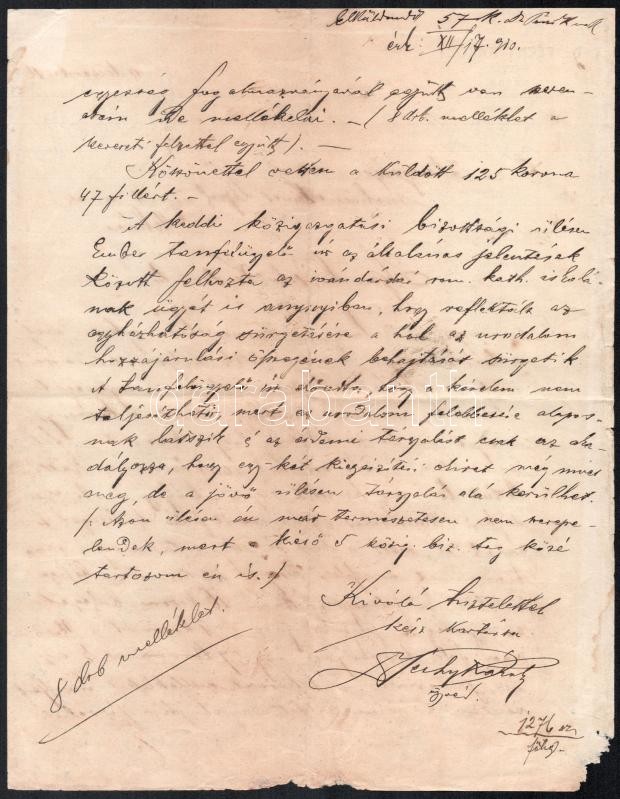 57
érk: XII/17. 910.
egyesség fogalmazványával együtt van szeren-
csém ide mellékelni. – (8 drb. melléklet a
szereneti felzettel együtt). –
Köszönettel vettem a küldött 125 korona
47 fillért. –
A keddi közigazgatási bizottsági ülésen
Ember tanfelügyelő úr az általános jelentések
között felhozta az ivándárdai rom. kath. iskolá-
nak ügyét is annyiban, hogy reflektált az
egyházhatóság sürgetésére a hol az uradalom
hozzájárulási összegének behajtását sürgetik
A tanfelügyelő úr előadta, hogy a kérelem nem
teljesíthető mert az uradalom felebbezése alapos-
nak látszik és az érdemi tárgyalást csak az aka-
dályozza, hogy egy-két kiegészítő okirat még nincs
meg, de a jövő ülésen tárgyalás alá kerülhet.
/: Azon ülésen én már természetesen nem szerepe-
lendek, mert a kieső 5 közig. biz. tag közé
tartozom én is. /
Kiváló tisztelettel
kész
Károly
ügyvéd.
8 drb melléklet.
1276
darabanth